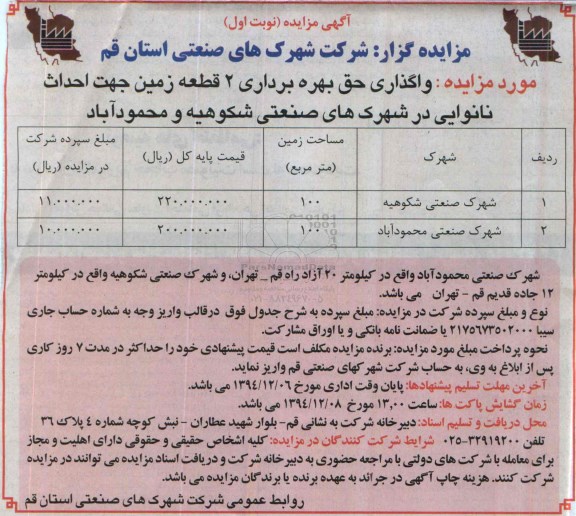 آگهی مزایده (نوبت اول)
مزایده گزار: شرکت شهرک های صنعتی استان قم
مورد مزایده : واگذاری حق بهره برداری ۲ قطعه زمین جهت احداث
نانوایی در شهرک های صنعتی شکوهیه و محمودآباد
ردیف شهرک مساحت زمین (متر مربع) قیمت پایه کل (ریال) مبلغ سپرده شرکت در مزایده (ریال)
۱ شهرک صنعتی شکوهیه ۱۰۰ ۲۲۰.۰۰۰.۰۰۰ ۱۱.۰۰۰.۰۰۰
۲ شهرک صنعتی محمودآباد ۱۰۰ ۲۰۰.۰۰۰.۰۰۰ ۱۰.۰۰۰.۰۰۰
شهرک صنعتی محمودآباد واقع در کیلومتر ۲۰ آزاد راه قم _ تهران، و شهرک صنعتی شکوهیه واقع در کیلومتر
۱۲ جاده قدیم قم - تهران می باشد.
نوع و مبلغ سپرده شرکت در مزایده: مبلغ سپرده به شرح جدول فوق درقالب واریز وجه به شماره حساب جاری
سیبا ۲۱۷۵۶۷۳۵۰۲۰۰۰ یا ضمانت نامه بانکی و یا اوراق مشارکت.
نحوه پرداخت مبلغ مورد مزایده: برنده مزایده مکلف است قیمت پیشنهادی خود را حداکثر در مدت ۷ روز کاری
پس از ابلاغ به وی، به حساب شرکت شهرکهای صنعتی قم واریز نماید.
آخرین مهلت تسلیم پیشنهادها: پایان وقت اداری مورخ ۱۳۹۴/۱۲/۰۶ می باشد.
زمان گشایش پاکت ها: ساعت ۱۳,۰۰ مورخ ۱۳۹۴/۱۲/۰۸ می باشد.
محل دریافت و تسلیم اسناد: دبیرخانه شرکت به نشانی قم- بلوار شهید عطاران - نبش کوچه شماره ۴ پلاک ۳۶
تلفن ۳۳۹۱۹۲۰۰-۰۲۵ شرایط شرکت کنندگان در مزایده: کلیه اشخاص حقیقی و حقوقی دارای اهلیت و مجاز
برای معامله با شرکت های دولتی با مراجعه حضوری به دبیرخانه شرکت و دریافت اسناد مزایده می توانند در مزایده
شرکت کنند. هزینه چاپ آگهی در جرائد به عهده برنده یا برندگان مزایده می باشد.
روابط عمومی شرکت شهرک های صنعتی استان قم